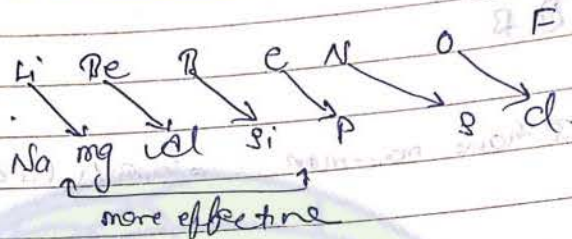 Li Be B C N O F
Na mg Al Si P S Cl
more effective